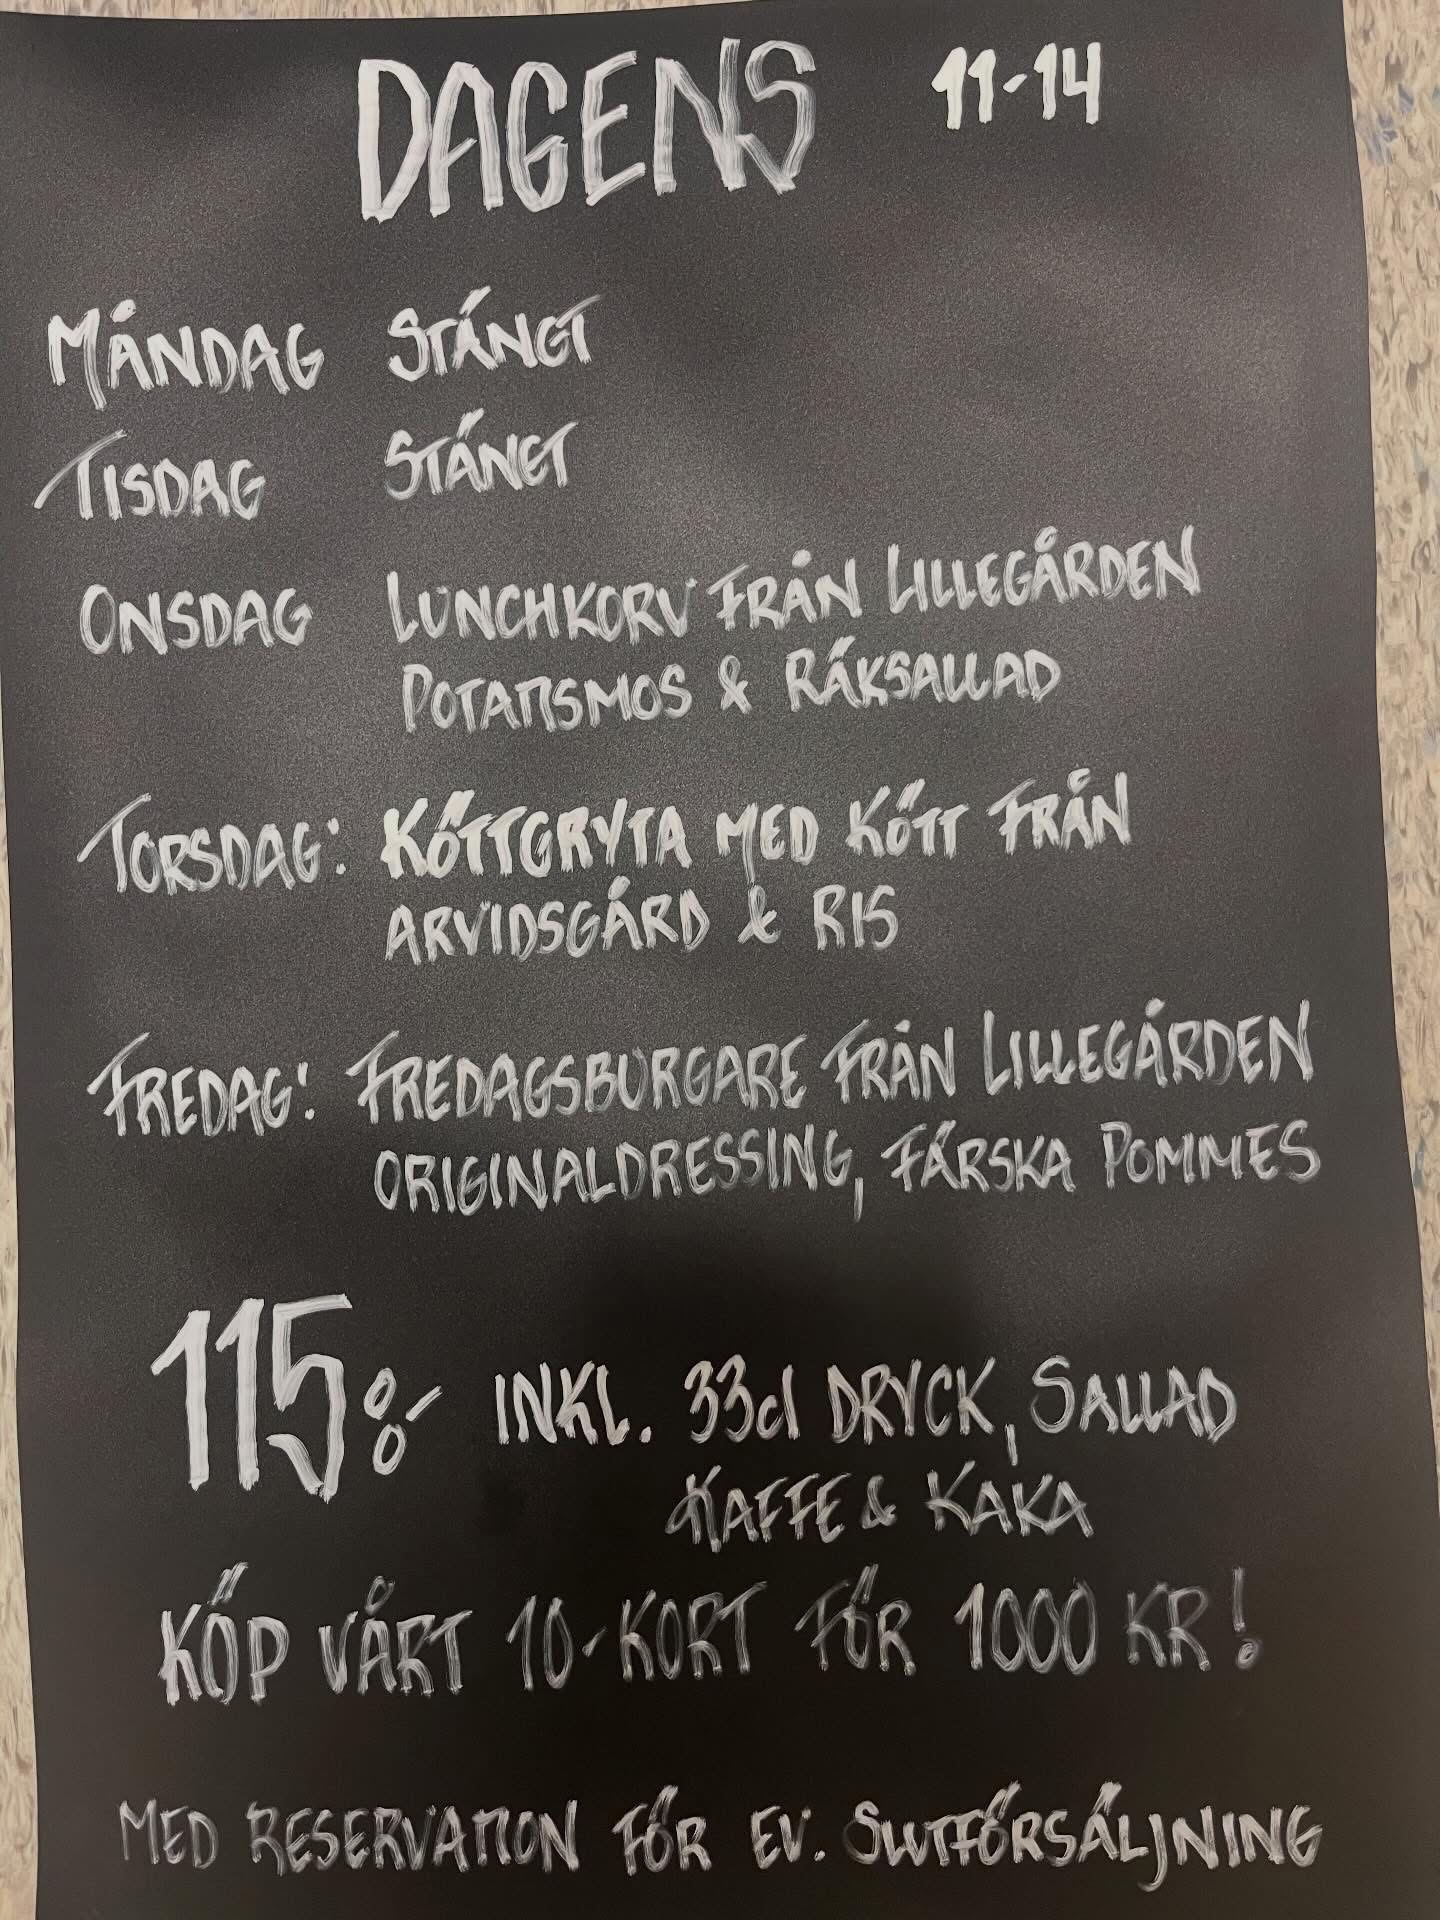 DAGENS 11-14
MÅNDAG STÄNGT
TISDAG STÄNGT
ONSDAG LUNCHKORV FRÅN LILLEGÅRDEN
POTATISMOS & RÄKSALLAD
TORSDAG: KÖTTGRYTA MED KÖTT FRÅN
ARVIDSGÅRD & RIS
FREDAG: FREDAGSBURGARE FRÅN LILLEGÅRDEN
ORIGINALDRESSING, FÄRSKA POMMES
115:- INKL. 33cl DRYCK, SALLAD
KAFFE & KAKA
KÖP VÅRT 10-KORT FÖR 1000 KR!
MED RESERVATION FÖR EV. SLUTFÖRSÄLJNING